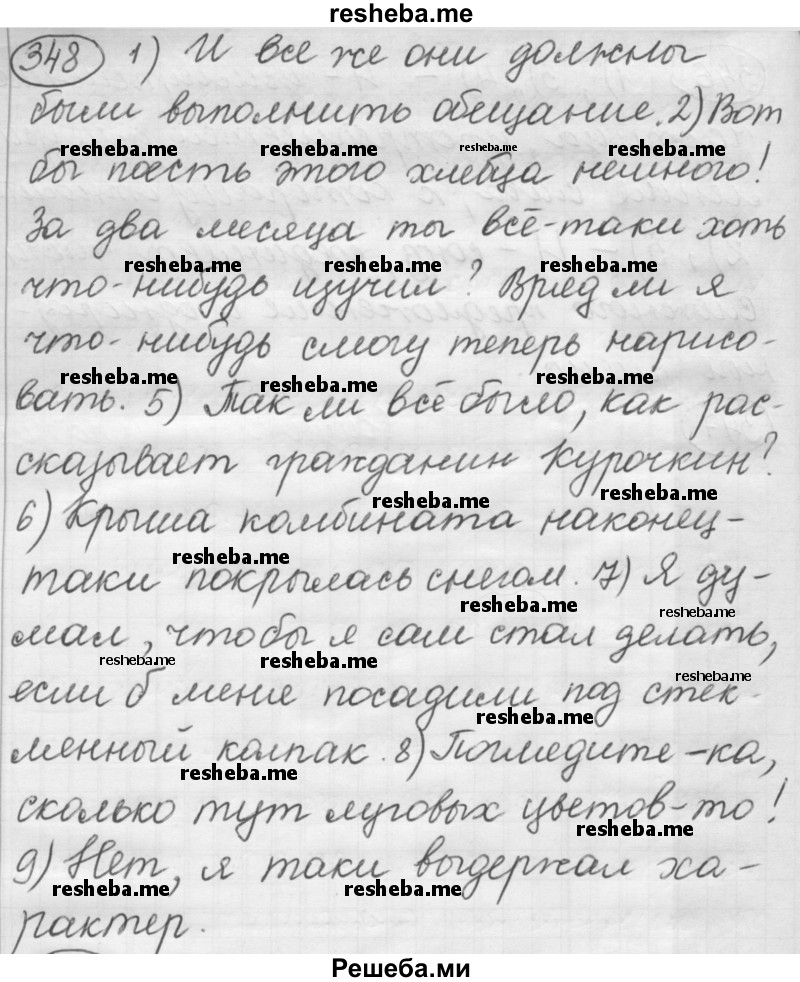 resheba.me
348 1) И все же они должны
были выполнить обещание. 2) Вот
resheba.me resheba.me resheba.me resheba.me
бы поесть этого хлебца немного!
За два месяца ты всё-таки хоть
resheba.me resheba.me resheba.me
что-нибудь изучил? Вряд ли я
что-нибудь смогу теперь нарисо-
resheba.me resheba.me resheba.me
вать. 5) Так ли всё было, как рас-
сказывает гражданин Курочкин?
resheba.me resheba.me
6) Крыша комбината наконец-
resheba.me
таки покрылась снегом. 7) Я ду-
resheba.me resheba.me
мал, что бы я сам стал делать,
resheba.me resheba.me
если б меня посадили под стек-
resheba.me
resheba.me
лянный колпак. 8) Поглядите-ка,
resheba.me
сколько тут луговых цветов-то!
resheba.me
9) Нет, я таки выдержал ха-
resheba.me resheba.me
рактер.
Решеба.ми